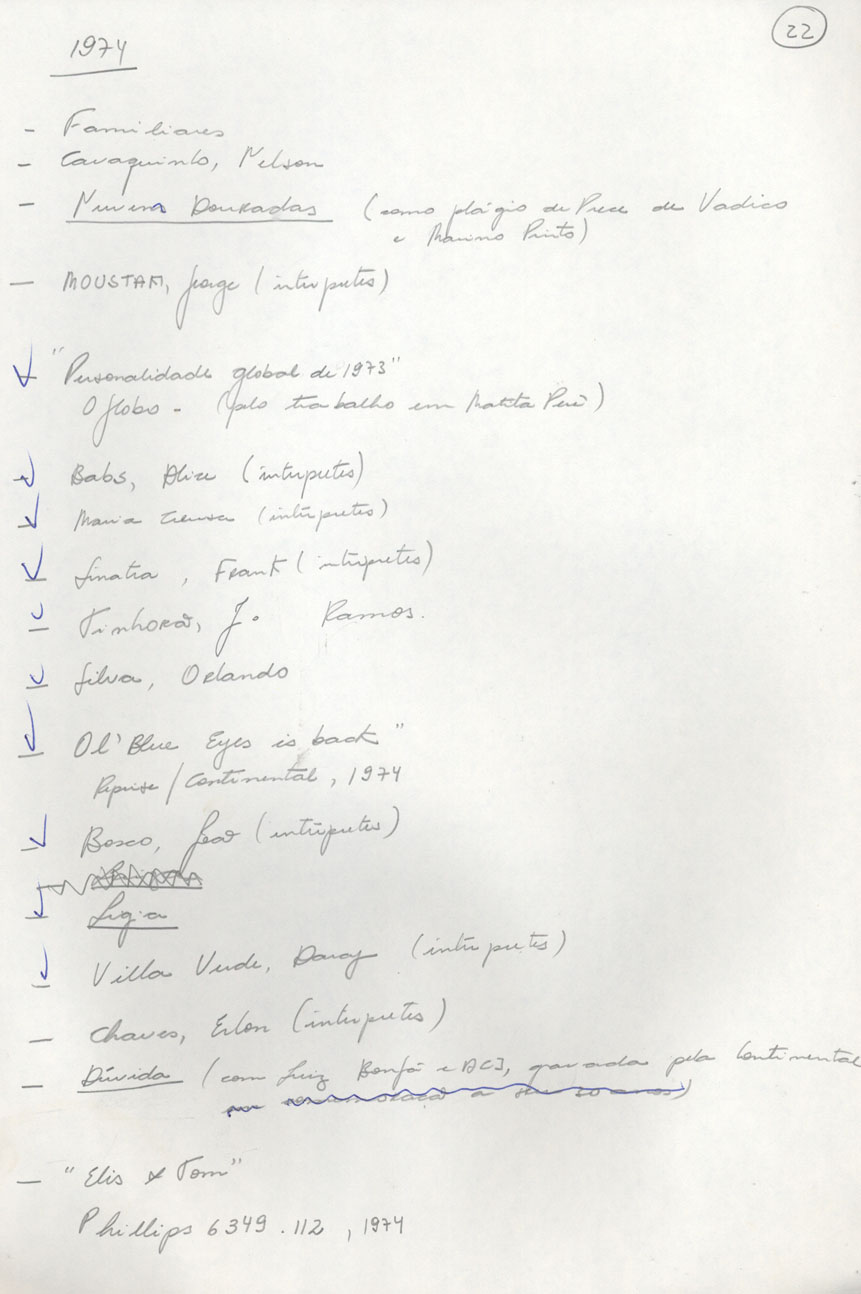 22
1974
- Familiares
- Cavaquinho, Nelson
- Nuvens Douradas (como plágio de Prece de Vadico
e Marino Pinto)
- MOUSTAKI, Jorge (intérpretes)
"Personalidade global de 1973"
O Globo - (pelo trabalho em Matita Perê)
Babs, Alice (intérpretes)
Maria Creuza (intérpretes)
Sinatra, Frank (intérpretes)
Tinhorão, J. Ramos.
Silva, Orlando
Ol' Blue Eyes is back"
Reprise/Continental, 1974
Bosco, João (intérpretes)
Ligia
Villa Verde, Darcy (intérpretes)
- Chaves, Erlon (intérpretes)
- Dúvida (com Luiz Bonfá e ACJ, gravada pela Continental
- "Elis & Tom"
Phillips 6349.112, 1974